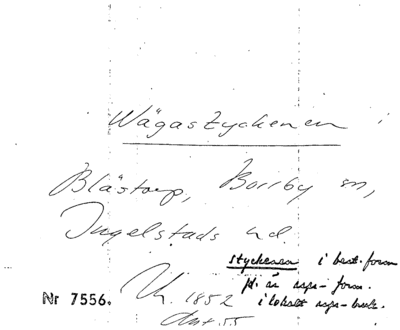 Wägastyckenen i
Blästorp, Borrby sn,
Ingelstads hd.
styckenen i best. form
pl. är ... - form.
i lokalt ... - bruk.
Nr 7556. Uh. 1852